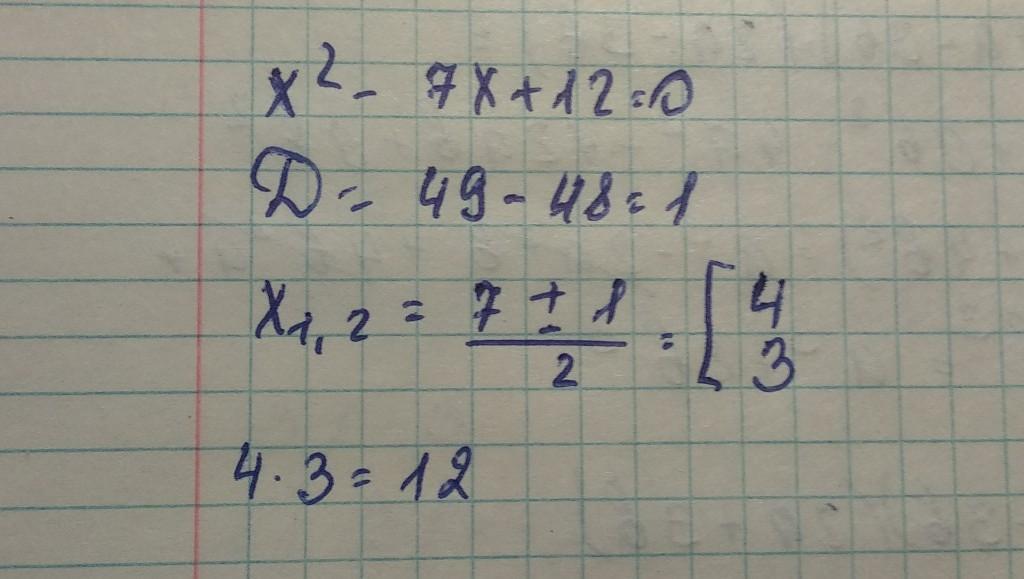 x² - 7x + 12 = 0
D = 49 - 48 = 1
x₁,₂ = (7 ± 1)/2 = [4 3
4 · 3 = 12